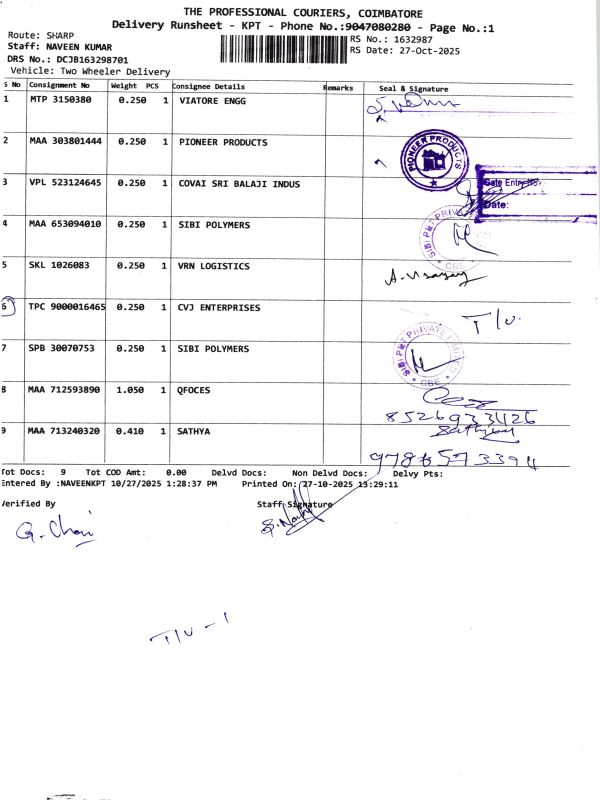 THE PROFESSIONAL COURIERS, COIMBATORE
Delivery Runsheet - KPT - Phone No.:9047080280 - Page No.:1
Route: SHARP
Staff: NAVEEN KUMAR
DRS No.: DCJB163298701
Vehicle: Two Wheeler Delivery
RS No.: 1632987
RS Date: 27-Oct-2025
S No Consignment No Weight PCS Consignee Details Remarks Seal & Signature
1 MTP 3150380 0.250 1 VIATORE ENGG
2 MAA 303801444 0.250 1 PIONEER PRODUCTS
PIONEER PRODUCTS
3 VPL 523124645 0.250 1 COVAI SRI BALAJI INDUS
Gate Entry No.
Date:
4 MAA 653094010 0.250 1 SIBI POLYMERS
SIBI PET PRIV
CBE
5 SKL 1026083 0.250 1 VRN LOGISTICS
6 TPC 9000016465 0.250 1 CVJ ENTERPRISES T/U.
7 SPB 30070753 0.250 1 SIBI POLYMERS
SIBI PET PRIVATE LIMITED
CBE
8 MAA 712593890 1.050 1 QFOCES
8526933426
9 MAA 713240320 0.410 1 SATHYA Sathya
9786573394
Tot Docs: 9 Tot COD Amt: 0.00 Delvd Docs: Non Delvd Docs: Delvy Pts:
Entered By :NAVEENKPT 10/27/2025 1:28:37 PM Printed On: 27-10-2025 13:29:11
Verified By Staff Signature
T/U - 1